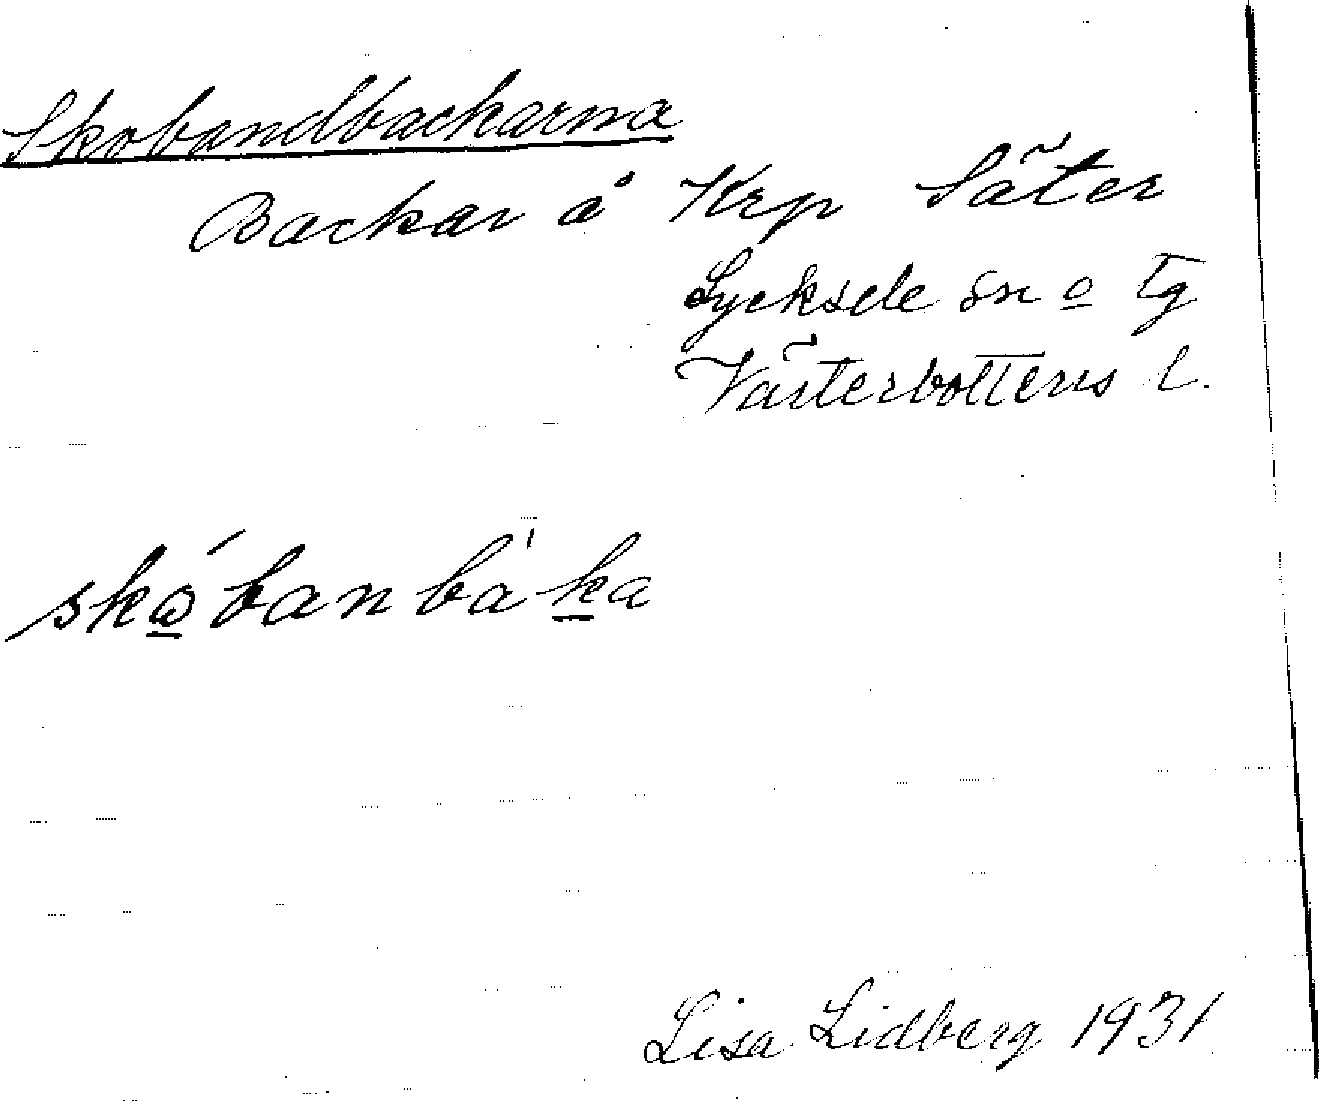 Skobandbackarna
Backar å Krp Säter
Lycksele sn o tg
Västerbottens l.
skɷ́banbà'ka
Lisa Lidberg 1931